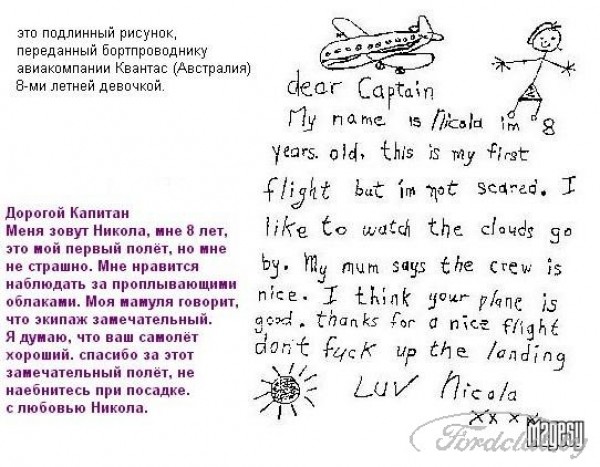 это подлинный рисунок,
переданный бортпроводнику
авиакомпании Квантас (Австралия)
8-ми летней девочкой.
dear Captain
My name is Nicola im 8
years. old, this is my first
flight but i'm not scared. I
like to watch the clouds go
by. My mum says the crew is
nice. I think your plane is
good. thanks for a nice flight
don't fuck up the landing
LUV Nicola
xxxx
Дорогой Капитан
Меня зовут Никола, мне 8 лет,
это мой первый полёт, но мне
не страшно. Мне нравится
наблюдать за проплывающими
облаками. Моя мамуля говорит,
что экипаж замечательный.
Я думаю, что ваш самолёт
хороший. спасибо за этот
замечательный полёт, не
наебнитесь при посадке.
с любовью Никола.